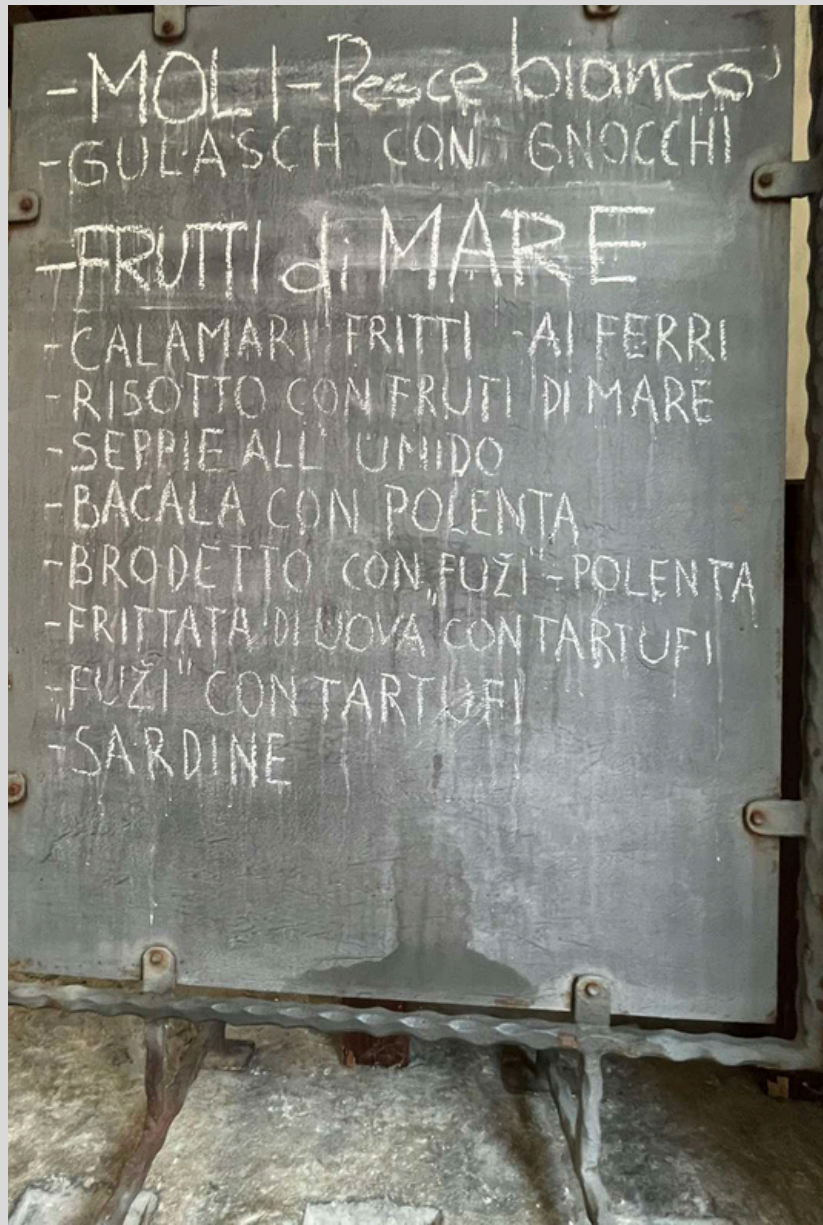 -MOLI-Pesce bianco
-GULASCH CON GNOCCHI
-FRUTTI di MARE
-CALAMARI FRITTI -AI FERRI
-RISOTTO CON FRUTI DI MARE
-SEPPIE ALL' UMIDO
-BACALA CON POLENTA
-BRODETTO CON „FUŽI"-POLENTA
-FRITTATA DI UOVA CON TARTUFI
-„FUŽI" CON TARTUFI
-SARDINE